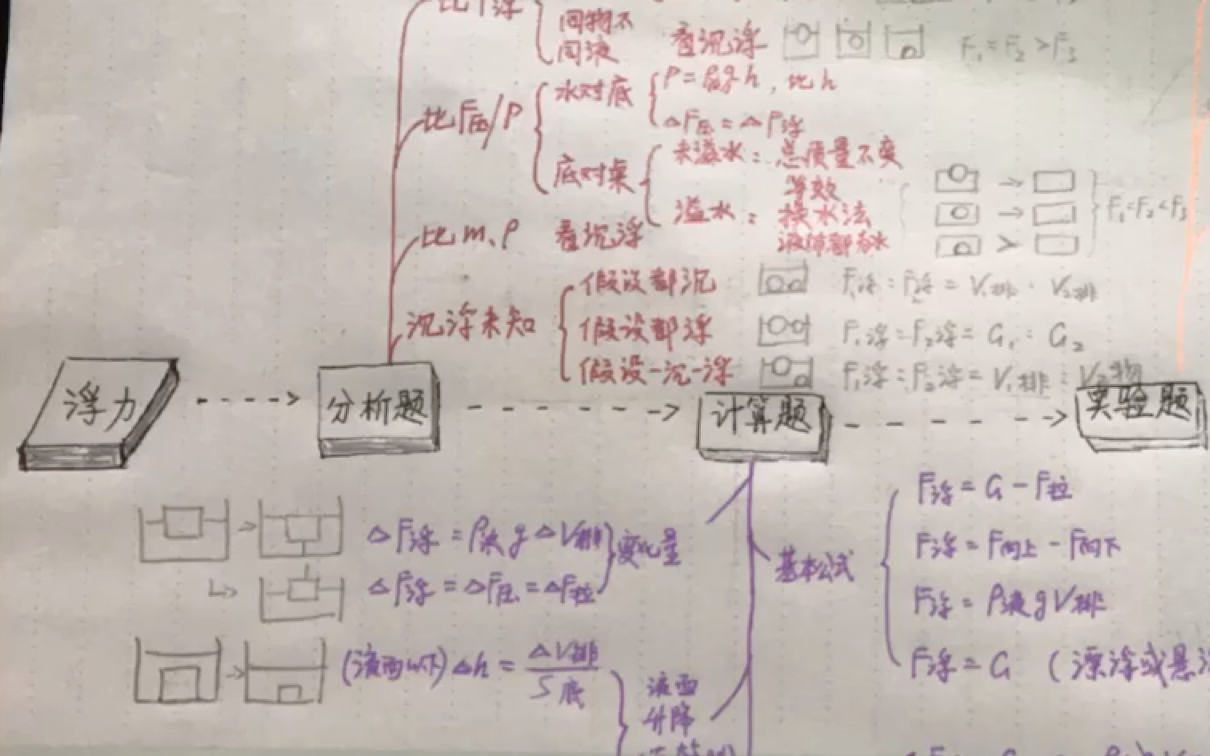 比F浮
同物不
同液 看沉浮 F₁=F₂>F₃
比F压/P
水对底 P=ρ液gh，比h
△F压=△F浮
底对桌 未溢水：总质量不变
等效
溢水：换水法
F₁=F₂<F₃
比m、ρ 看沉浮
沉浮未知
假设都沉 F₁浮:F₂浮=V₁排:V₂排
假设都浮 F₁浮:F₂浮=G₁:G₂
假设一沉一浮 F₁浮:F₂浮=V₁排:V₂物
浮力 分析题 计算题 实验题
△F浮=ρ液g△V排
△F浮=△F压=△F拉
变化量
(液面以下)△h=△V排/S底
液面
升降
基本公式
F浮=G-F拉
F浮=F向上-F向下
F浮=ρ液gV排
F浮=G (漂浮或悬浮